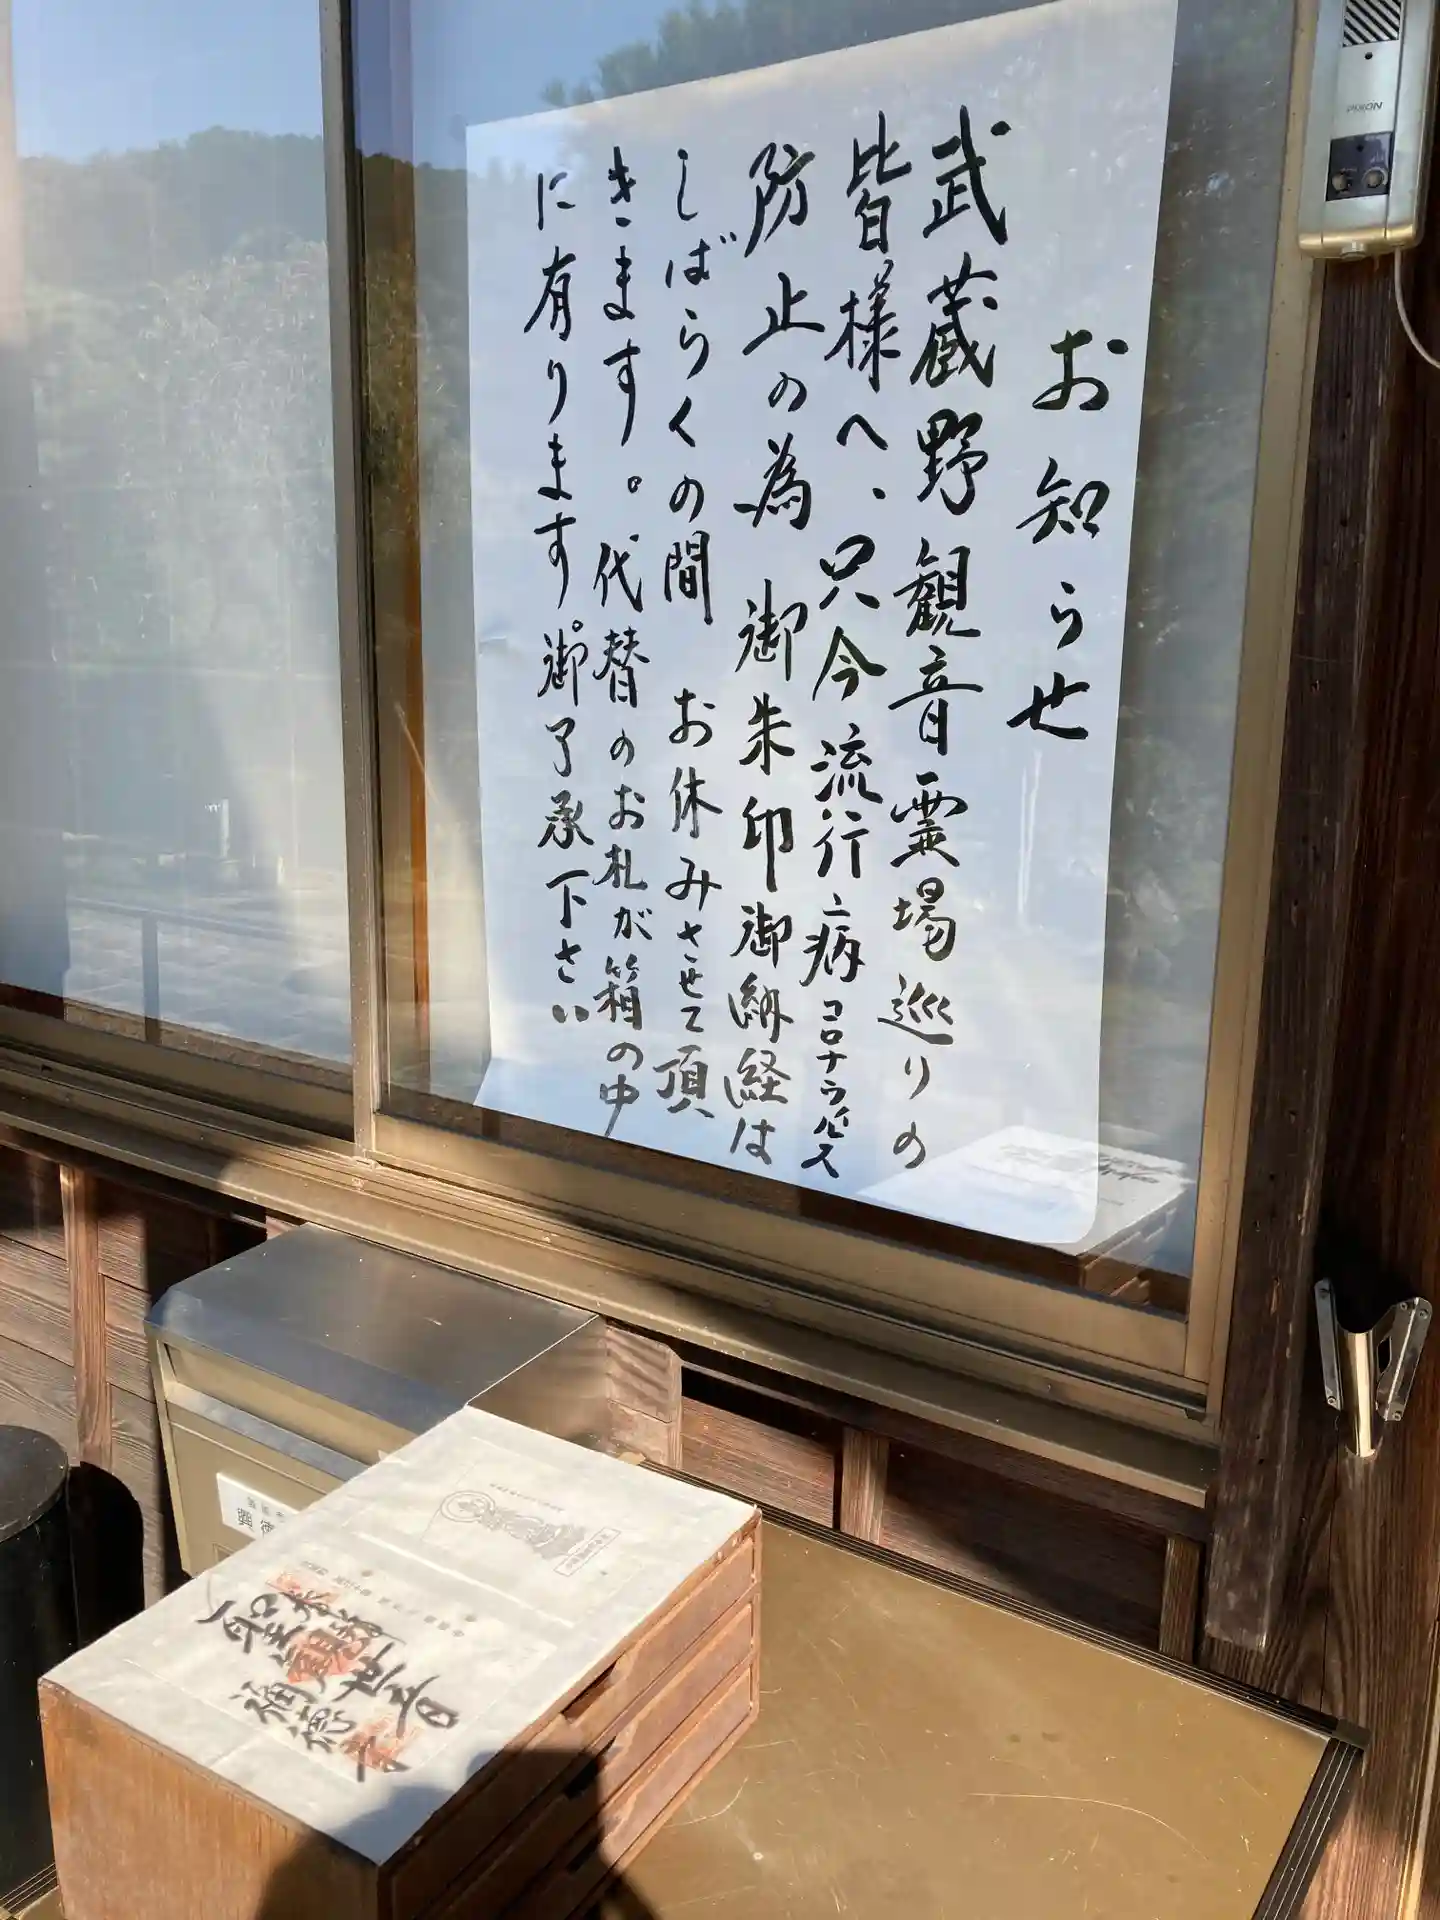 お知らせ
武蔵野観音霊場巡りの
皆様へ、只今流行病コロナウイルス
防止の為 御朱印御納経は
しばらくの間 お休みさせて頂
きます。代替のお札が箱の中
に有ります。御了承下さい
DIXON
本尊
聖観世音
福徳寺